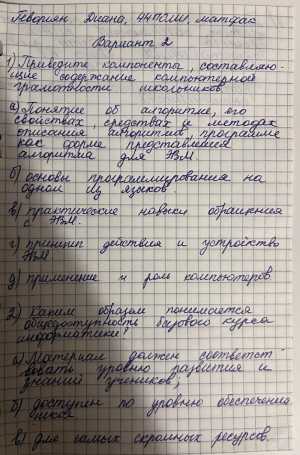 Геворгян Диана, 44ПОИМ, матфак
Вариант 2
1) Приведите компоненты, составляю-
щие содержание компьютерной
грамотности школьников
а) Понятие об алгоритме, его
свойствах, средствах и методах
описания алгоритмов, программе
как форме представления
алгоритма для ЭВМ
б) основы программирования на
одном из языков
в) практические навыки обращения
с ЭВМ.
г) принцип действия и устройство
ЭВМ
д) применение и роль компьютеров
2) Каким образом понимается
общедоступность базового курса
информатики?
а) Материал должен соответст
вовать уровню развития и
знаний учеников;
б) доступен по уровню обеспечения
школ
в) для самых скромных ресурсов.